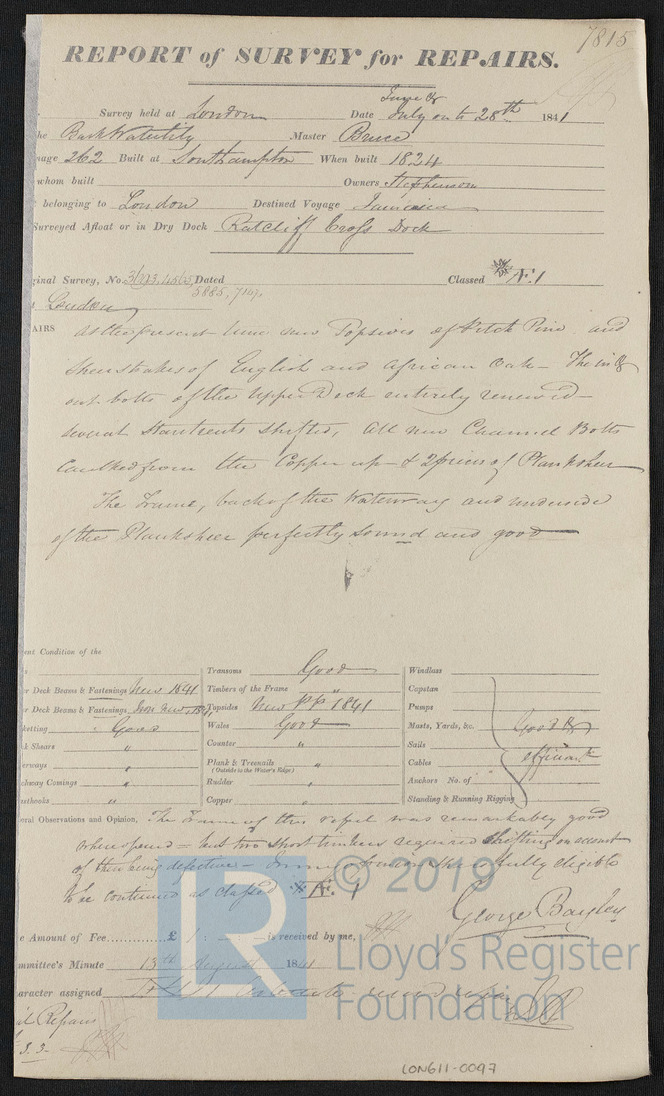 7815
REPORT of SURVEY for REPAIRS.
Survey held at London Date June & July on to 28th 1841
he Bark Waterlily Master Bruce
nage 262 Built at Southampton When built 1824
whom built Owners Stephenson
belonging to London Destined Voyage Jamaica
Surveyed Afloat or in Dry Dock Ratcliff Cross Dock
ginal Survey, No. Dated Classed Æ 1
5885, 7147,
London
AIRS At the present time new Topsides of Pitch Pine and
Sheerstrakes of English and African Oak - The in &
out bolts of the Upper Deck entirely renewed -
several Stantients shifted, all new Channel Bolts
Caulked from the Copper up - & 2 pieces of Planksheer
The Frame, back of the Waterway and underside
of the Planksheer perfectly sound and good
ent Condition of the
r Deck Beams & Fastenings New 1841
r Deck Beams & Fastenings, Iron New, 1841
keting " Good
k Shears "
erways "
chway Comings "
sthooks "
Transoms Good
Timbers of the Frame
Topsides New PP 1841
Wales Good
Counter "
Plank & Treenails "
(Outside to the Water's Edge)
Rudder "
Copper "
Windlass
Capstan
Pumps
Masts, Yards, &c. Good &
Sails
Cables efficient
Anchors No. of
Standing & Running Rigging
eral Observations and Opinion, The Frame of this vessel was remarkably good
where opened = but two short timbers required shifting on account
of their being defective - In my opinion she is fully eligible
to be continued as classed Æ 1
George Bayley
e Amount of Fee............£ 1 : is received by me,
mmittee's Minute 13th August 1841
aracter assigned
al Repairs
S. S.
© 2019
LR
Lloyd's Register
Foundation
LON611-0097